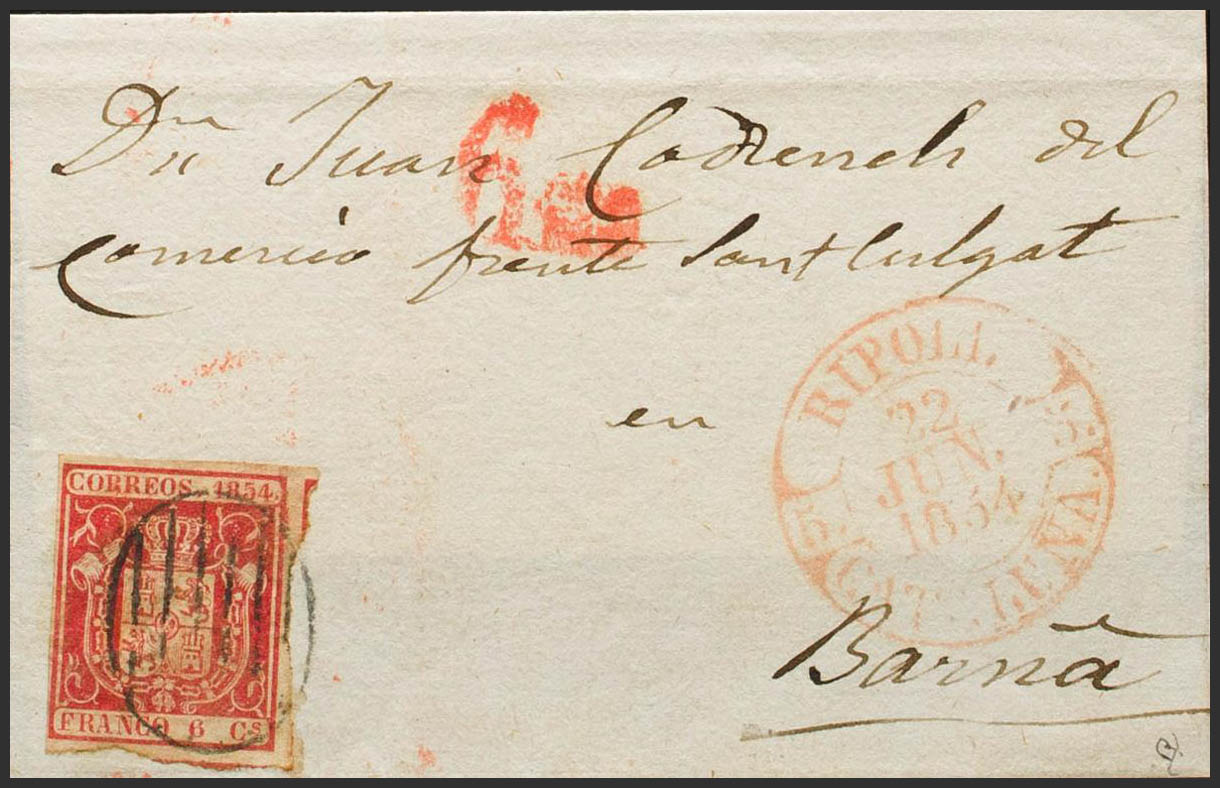 Dn Juan Codrench del
comercio frente Sant Culgat
en
Barna
RIPOLL
22
JUN.
1854
CATALUNA.
CORREOS 1854.
FRANCO 6 Cs